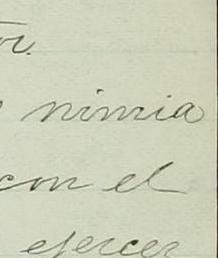 nimia
con el
ejercer